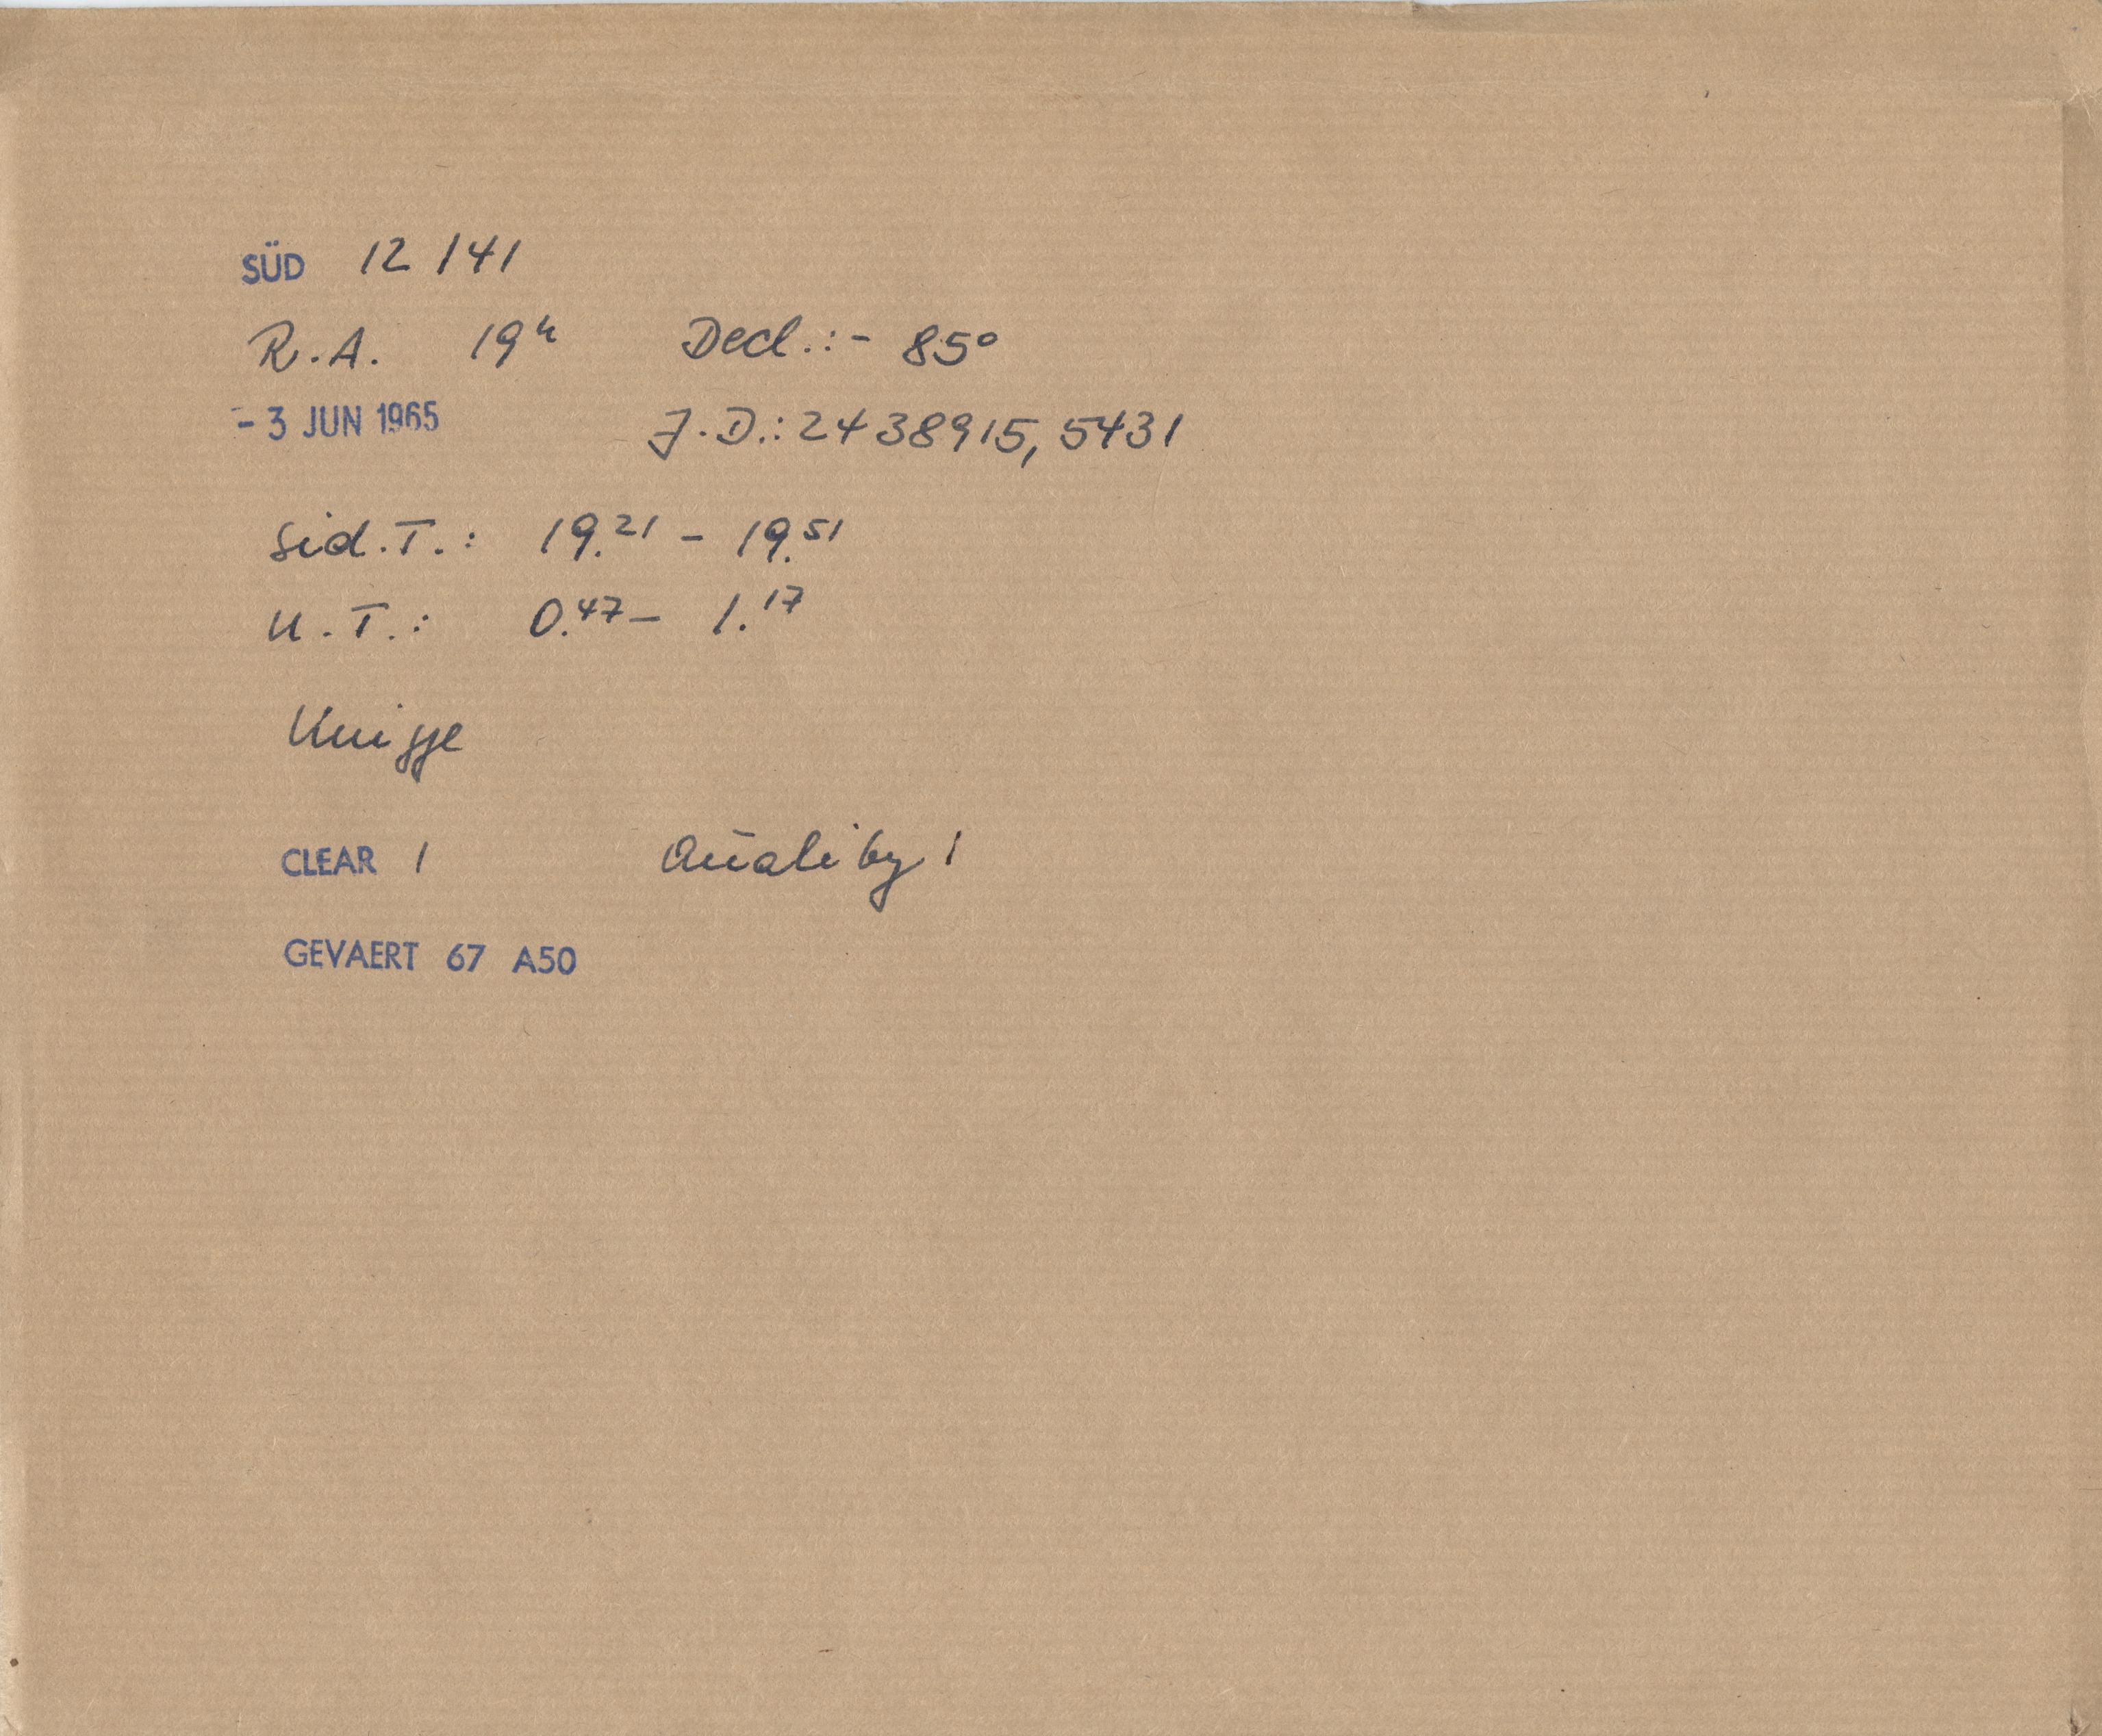 SÜD 12141
R.A. 19h Decl.: - 85°
- 3 JUN 1965 J.D.: 2438915,5431
Sid.T.: 19.21 - 19.51
U.T.: 0.47 - 1.17
Knigge
CLEAR 1 Quality 1
GEVAERT 67 A50